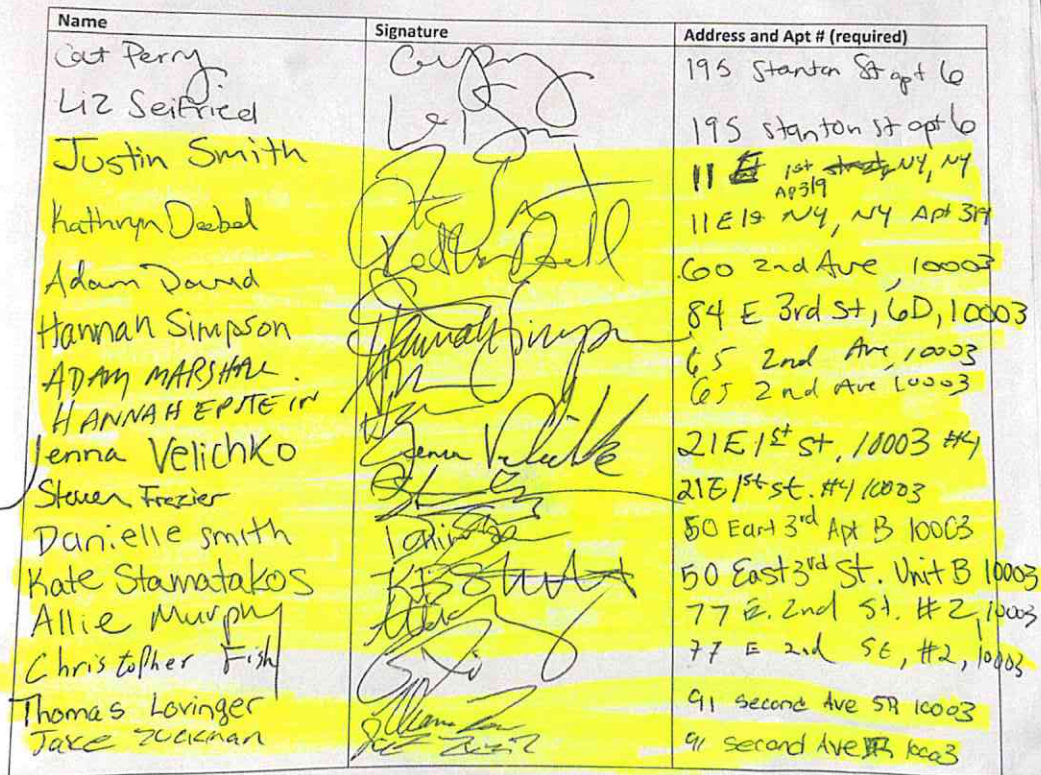 Name Signature Address and Apt # (required)
Cat Perry 195 Stanton St apt 6
Liz Seifried 195 Stanton St apt 6
Justin Smith 11 1st NY, NY
Ap319
Kathryn Deebel 11 E 1st NY, NY Apt 319
Adam David 60 2nd Ave, 10003
Hannah Simpson Hannah Simpson 84 E 3rd St, 6D, 10003
ADAM MARSHALL 65 2nd Ave, 10003
HANNAH EPSTEIN 65 2nd Ave 10003
Jenna Velichko Jenna Velichko 21 E 1st St, 10003 #4
Steven Frezier 21 E 1st st. #4 10003
Danielle Smith 50 East 3rd Apt B 10003
Kate Stamatakos 50 East 3rd St. Unit B 10003
Allie Murphy 77 E. 2nd St. #2, 10003
Christopher Fish 77 E 2nd St, #2, 10003
Thomas Lovinger 91 second Ave 10003
Jake Zuckman 91 second Ave 10003